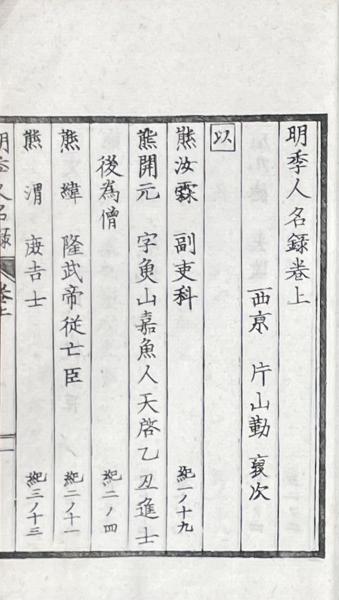 明季人名錄卷上
西京 片山勤 裒次
以
熊汝霖 副吏科 紀一ノ十九
熊開元 字魚山嘉魚人天啓乙丑進士
後為僧 紀二ノ四
熊緯 隆武帝從亡臣 紀二ノ十一
熊渭 庶吉士 紀三ノ十三
明季人名錄 卷上